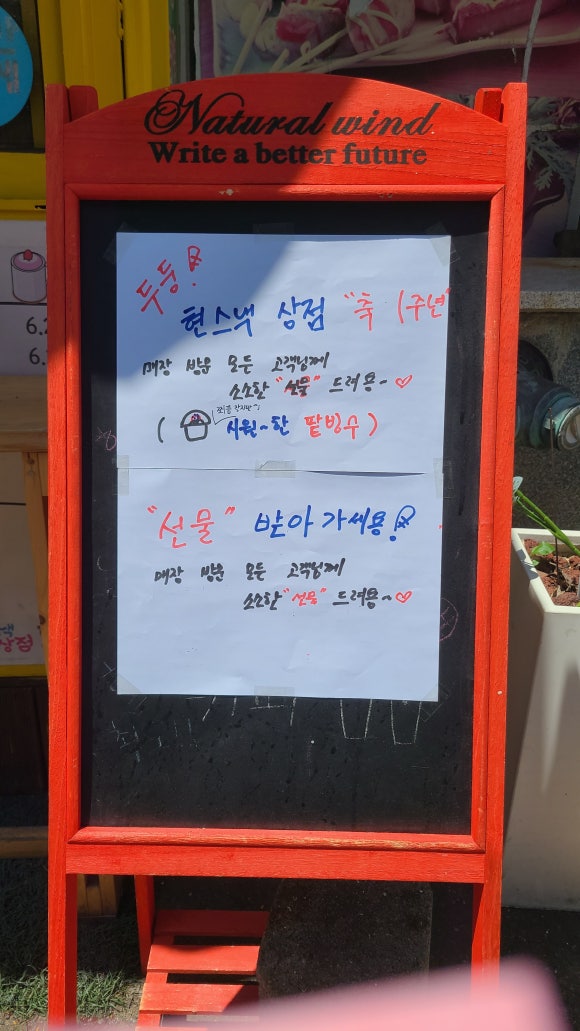 Natural wind
Write a better future
두둥!
현스낵 상점 "축 1주년"
매장 방문 모든 고객님께
소소한 "선물" 드려용~♡
( 시원~한 팥빙수 )
"선물" 받아가세용!
매장 방문 모든 고객님께
소소한 "선물" 드려용~♡
6.2
6.
상점